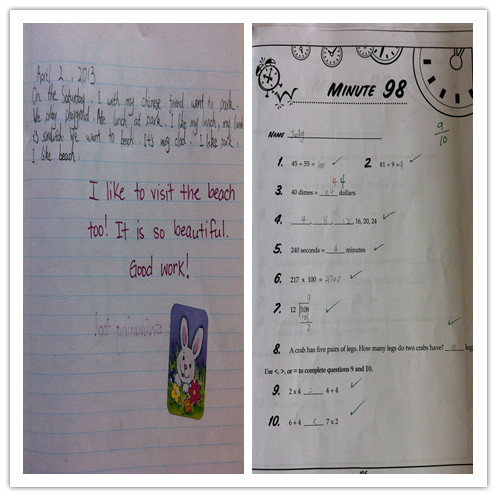 April 2, 2013
On the Saturday, I with my chinese friend went to park.
We play playground. Ate lunch at park. I like my lunch, my lunch
is sandwich. We want to beach. It's very clod. I like park.
I like beach.
I like to visit the beach
too! It is so beautiful.
Good work!
MINUTE 98
9
10
NAME Judy
1. 45 + 55 =
2. 81 ÷ 9 =
4 4
3. 40 dimes = dollars
4. 4, 8, 12, 16, 20, 24
5. 240 seconds = 4 minutes
6. 217 x 100 =
7. 12 108
8. A crab has five pairs of legs. How many legs do two crabs have?
Use <, >, or = to complete questions 9 and 10.
9. 2 x 4 = 4 + 4
10. 6 + 4 < 7 x 2